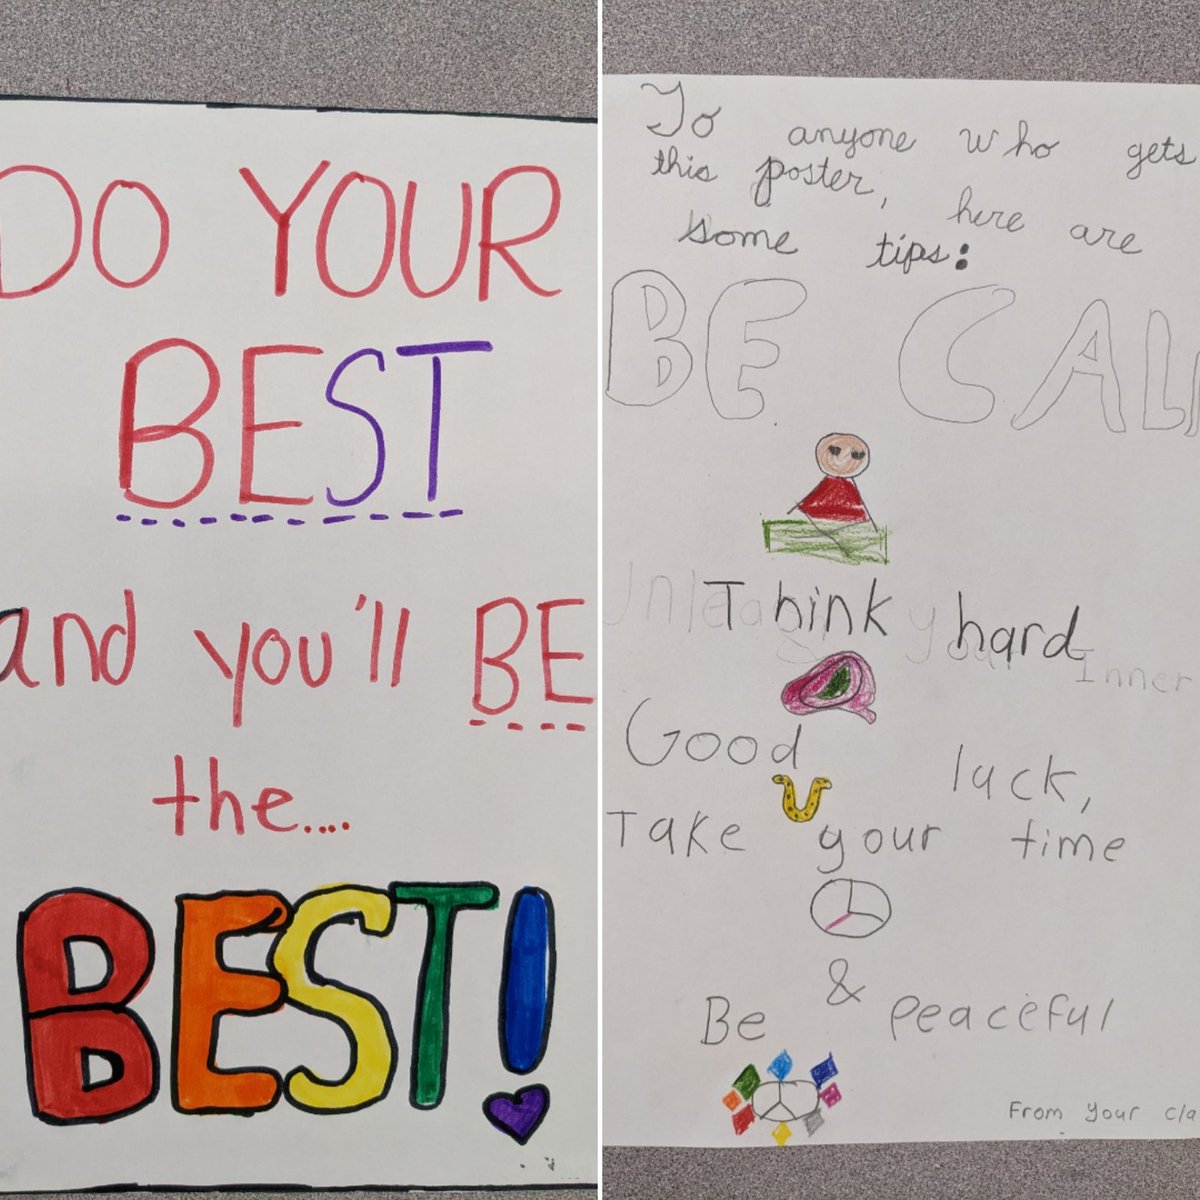 DO YOUR
BEST
and you'll BE
the....
BEST!
To anyone who gets
this poster, here are
some tips:
BE CAL
Think hard
Inner
Good luck,
Take your time
&
Be peaceful
From your cla